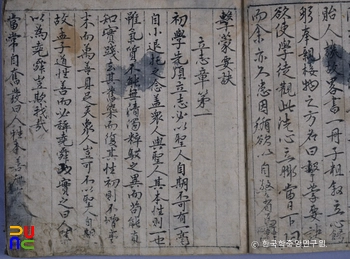 略書一冊子粗叙立心
躬奉親接物之方名曰擊蒙要訣
欲使學徒觀此洗心立脚當日下功
而余亦久患因循欲以自警省焉
擊蒙要訣
立志章第一
初學先須立志必以聖人自期不可有一毫
自小退托之念盖衆人與聖人其本性則一也
雖氣質不能無淸濁粹駁之異而苟能眞
知實踐去其舊染而復其性初則不增毫
末而萬善具足矣衆人豈可不以聖人自期
故孟子道性善而必稱堯舜以實之曰人皆
以爲堯舜豈欺我哉
當常自奮發曰人性本善
한국학중앙연구원